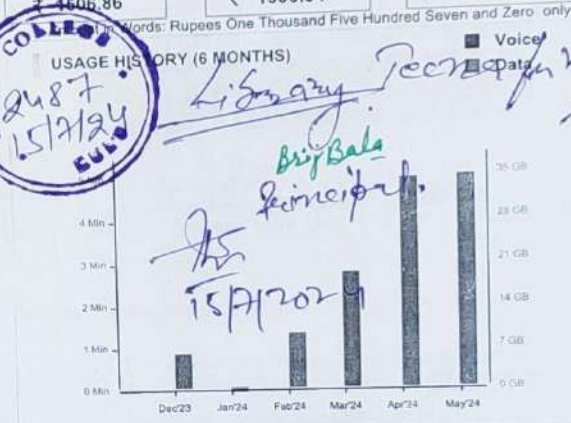 ₹ 1606.86
Words: Rupees One Thousand Five Hundred Seven and Zero only
COLLEGE
2487
15/7/24
USAGE HISTORY (6 MONTHS)
Voice
Data
Library
Brij Bala
Principal.
15/7/2024
4 Min
3 Min
2 Min
1 Min
0 Min
35 GB
28 GB
21 GB
14 GB
7 GB
0 GB
Dec'23 Jan'24 Feb'24 Mar'24 Apr'24 May'24